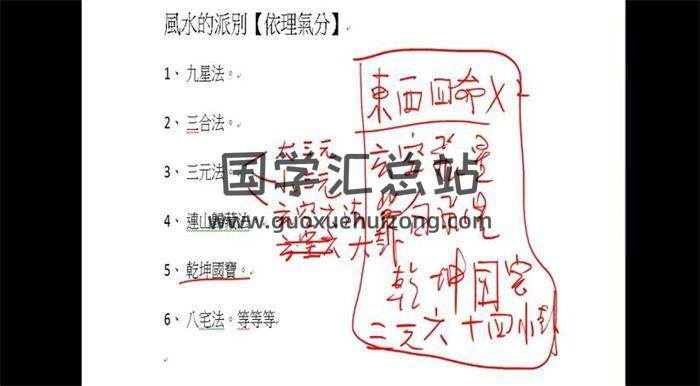 風水的派別【依理氣分】
1、九星法。
2、三合法。
3、三元法。
大三元
三元
4、連山歸藏法
5、乾坤國寶。
6、八宅法。等等等
東西四命
乾坤国宝
三元六十四小卦
国学汇总站
www.guoxuehuizong.com